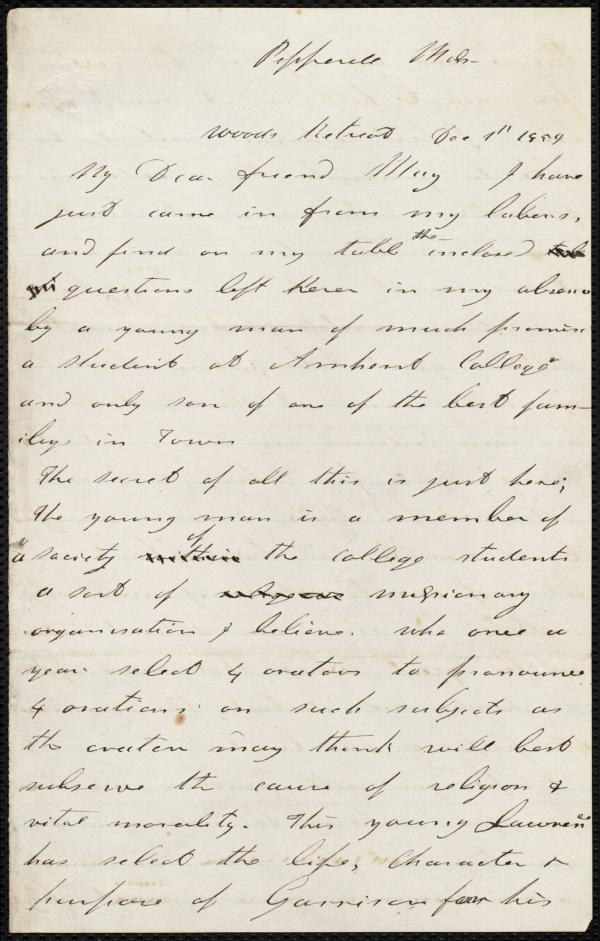 Pepperell Mas-
Woods Retreat Dec 1st 1859
My Dear friend May I have
just came in from my labors,
and find on my table the inclosed
questions left here in my absence
by a young man of much promise
a student at Amherst College
and only son of one of the best fam-
ilys in Town
The secret of all this is just here;
the young man is a member of
a society of the college students
a sort of missionary
organisation I believe. who once a
year select 4 orators to pronounce
4 orations on such subjects as
the orators may think will best
subserve the cause of religion &
vital morality. This young Lawrence
has select the life, Character &
purpose of Garrison for his